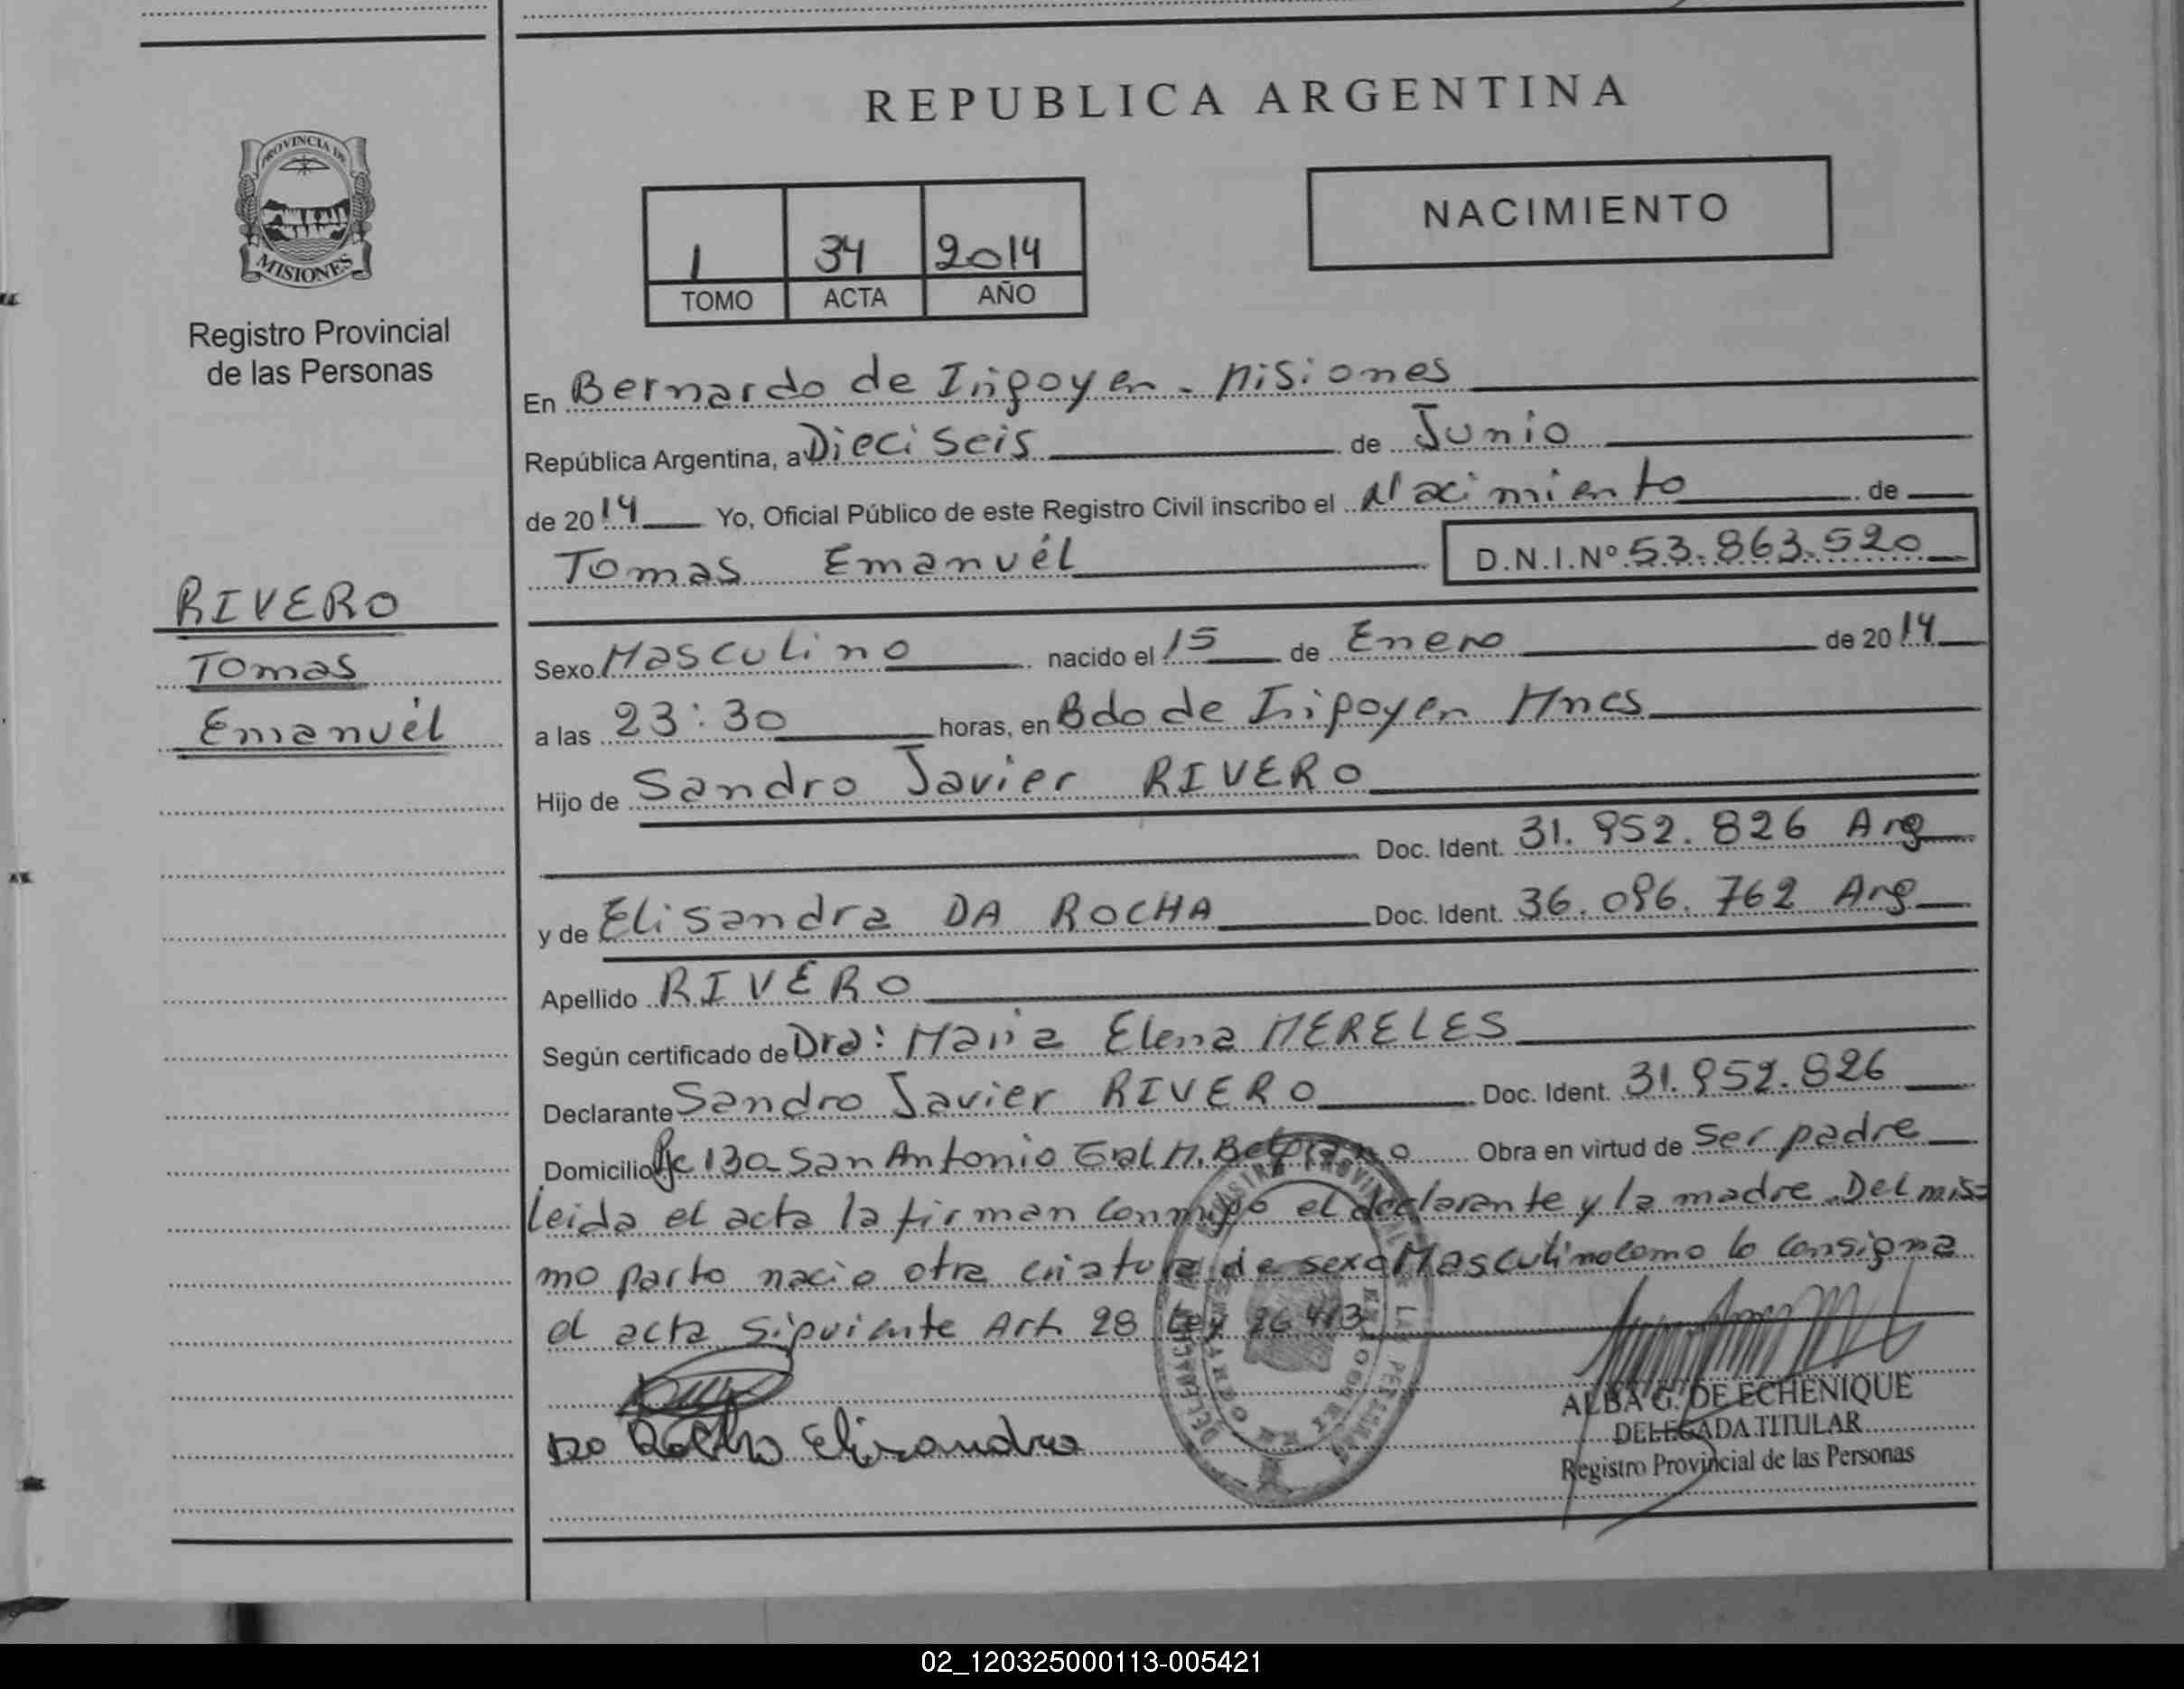 REPUBLICA ARGENTINA
PROVINCIA DE
MISIONES
Registro Provincial
de las Personas
1 34 2014
TOMO ACTA AÑO
NACIMIENTO
En Bernardo de Irigoyen - Misiones
República Argentina, a Dieciseis de Junio
de 2014 Yo, Oficial Público de este Registro Civil inscribo el Nacimiento de
Tomas Emanuél D.N.I.Nº 53.863.520
RIVERO
Tomas
Emanuél
Sexo Masculino nacido el 15 de Enero de 2014
a las 23:30 horas, en Bdo de Irigoyen Mnes
Hijo de Sandro Javier RIVERO
Doc. Ident. 31.952.826 Arg
y de Elisandra DA ROCHA Doc. Ident. 36.096.762 Arg
Apellido RIVERO
Según certificado de Dra: Maria Elena MERELES
Declarante Sandro Javier RIVERO Doc. Ident. 31.952.826
Domicilio Pje 130 San Antonio Gral M. Belgrano Obra en virtud de Ser padre
Leida el acta la firman conmigo el declarante y la madre. Del mis=
mo parto nacio otra criatura de sexo Masculino como lo consigna
el acta siguiente Art 28 Ley 26413
Da Rocha Elisandra
ALBA G. DE ECHENIQUE
DELEGADA TITULAR
Registro Provincial de las Personas
02_120325000113-005421